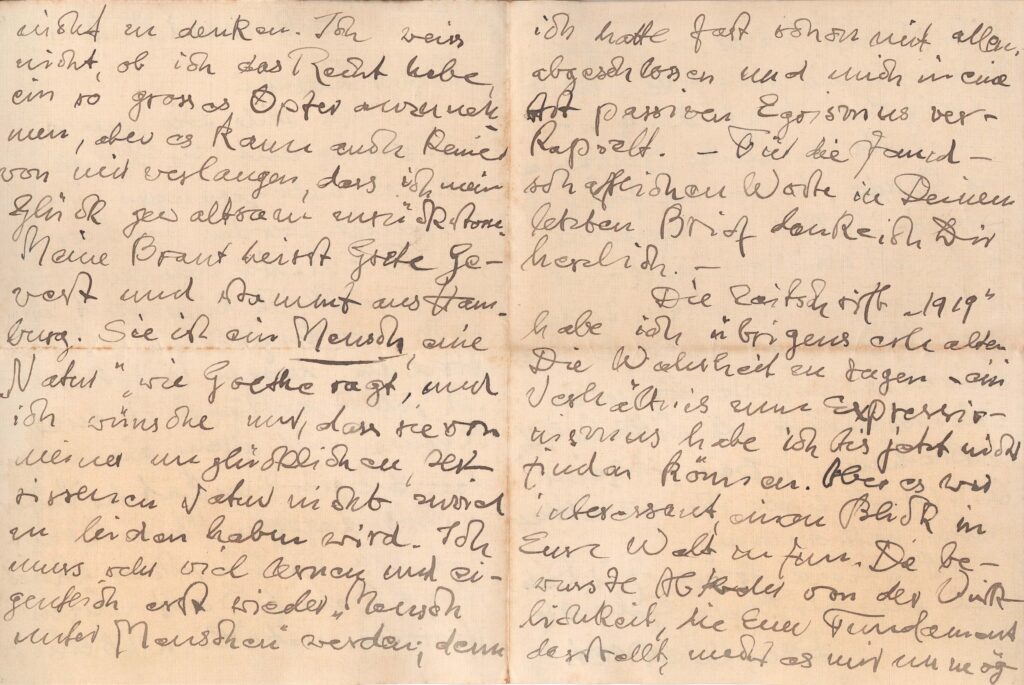 nicht zu denken. Ich weiss
nicht, ob ich das Recht habe,
ein so grosses Opfer anzuneh-
men, aber es kann auch keiner
von mir verlangen, dass ich mein
Glück gewaltsam zurückstosse.
Meine Braut heisst Grete Ge-
vert und stammt aus Ham-
burg. Sie ist ein Mensch, eine
„Natur“, wie Goethe sagt, und
ich wünsche nur, dass sie von
meiner unglücklichen, zer-
rissenen Natur nicht zuviel
zu leiden haben wird. Ich
muss sehr viel lernen und ei-
gentlich erst wieder „Mensch
unter Menschen“ werden; denn
ich hatte fast schon mit allem
abgeschlossen und mich in eine
Art passiven Egoismus ver-
kapselt. – Für die freund-
schaftlichen Worte in Deinem
letzten Brief danke ich Dir
herzlich. –
Die Zeitschrift „1919“
habe ich übrigens erhalten.
Die Wahrheit zu sagen – ein
Verhältnis zum Expressio-
nismus habe ich bis jetzt nicht
finden können. Aber es war
interessant, einen Blick in
Eure Welt zu tun. Die be-
wusste Abkehr von der Wirk-
lichkeit, die Euer Fundament
darstellt, macht es mir unmög